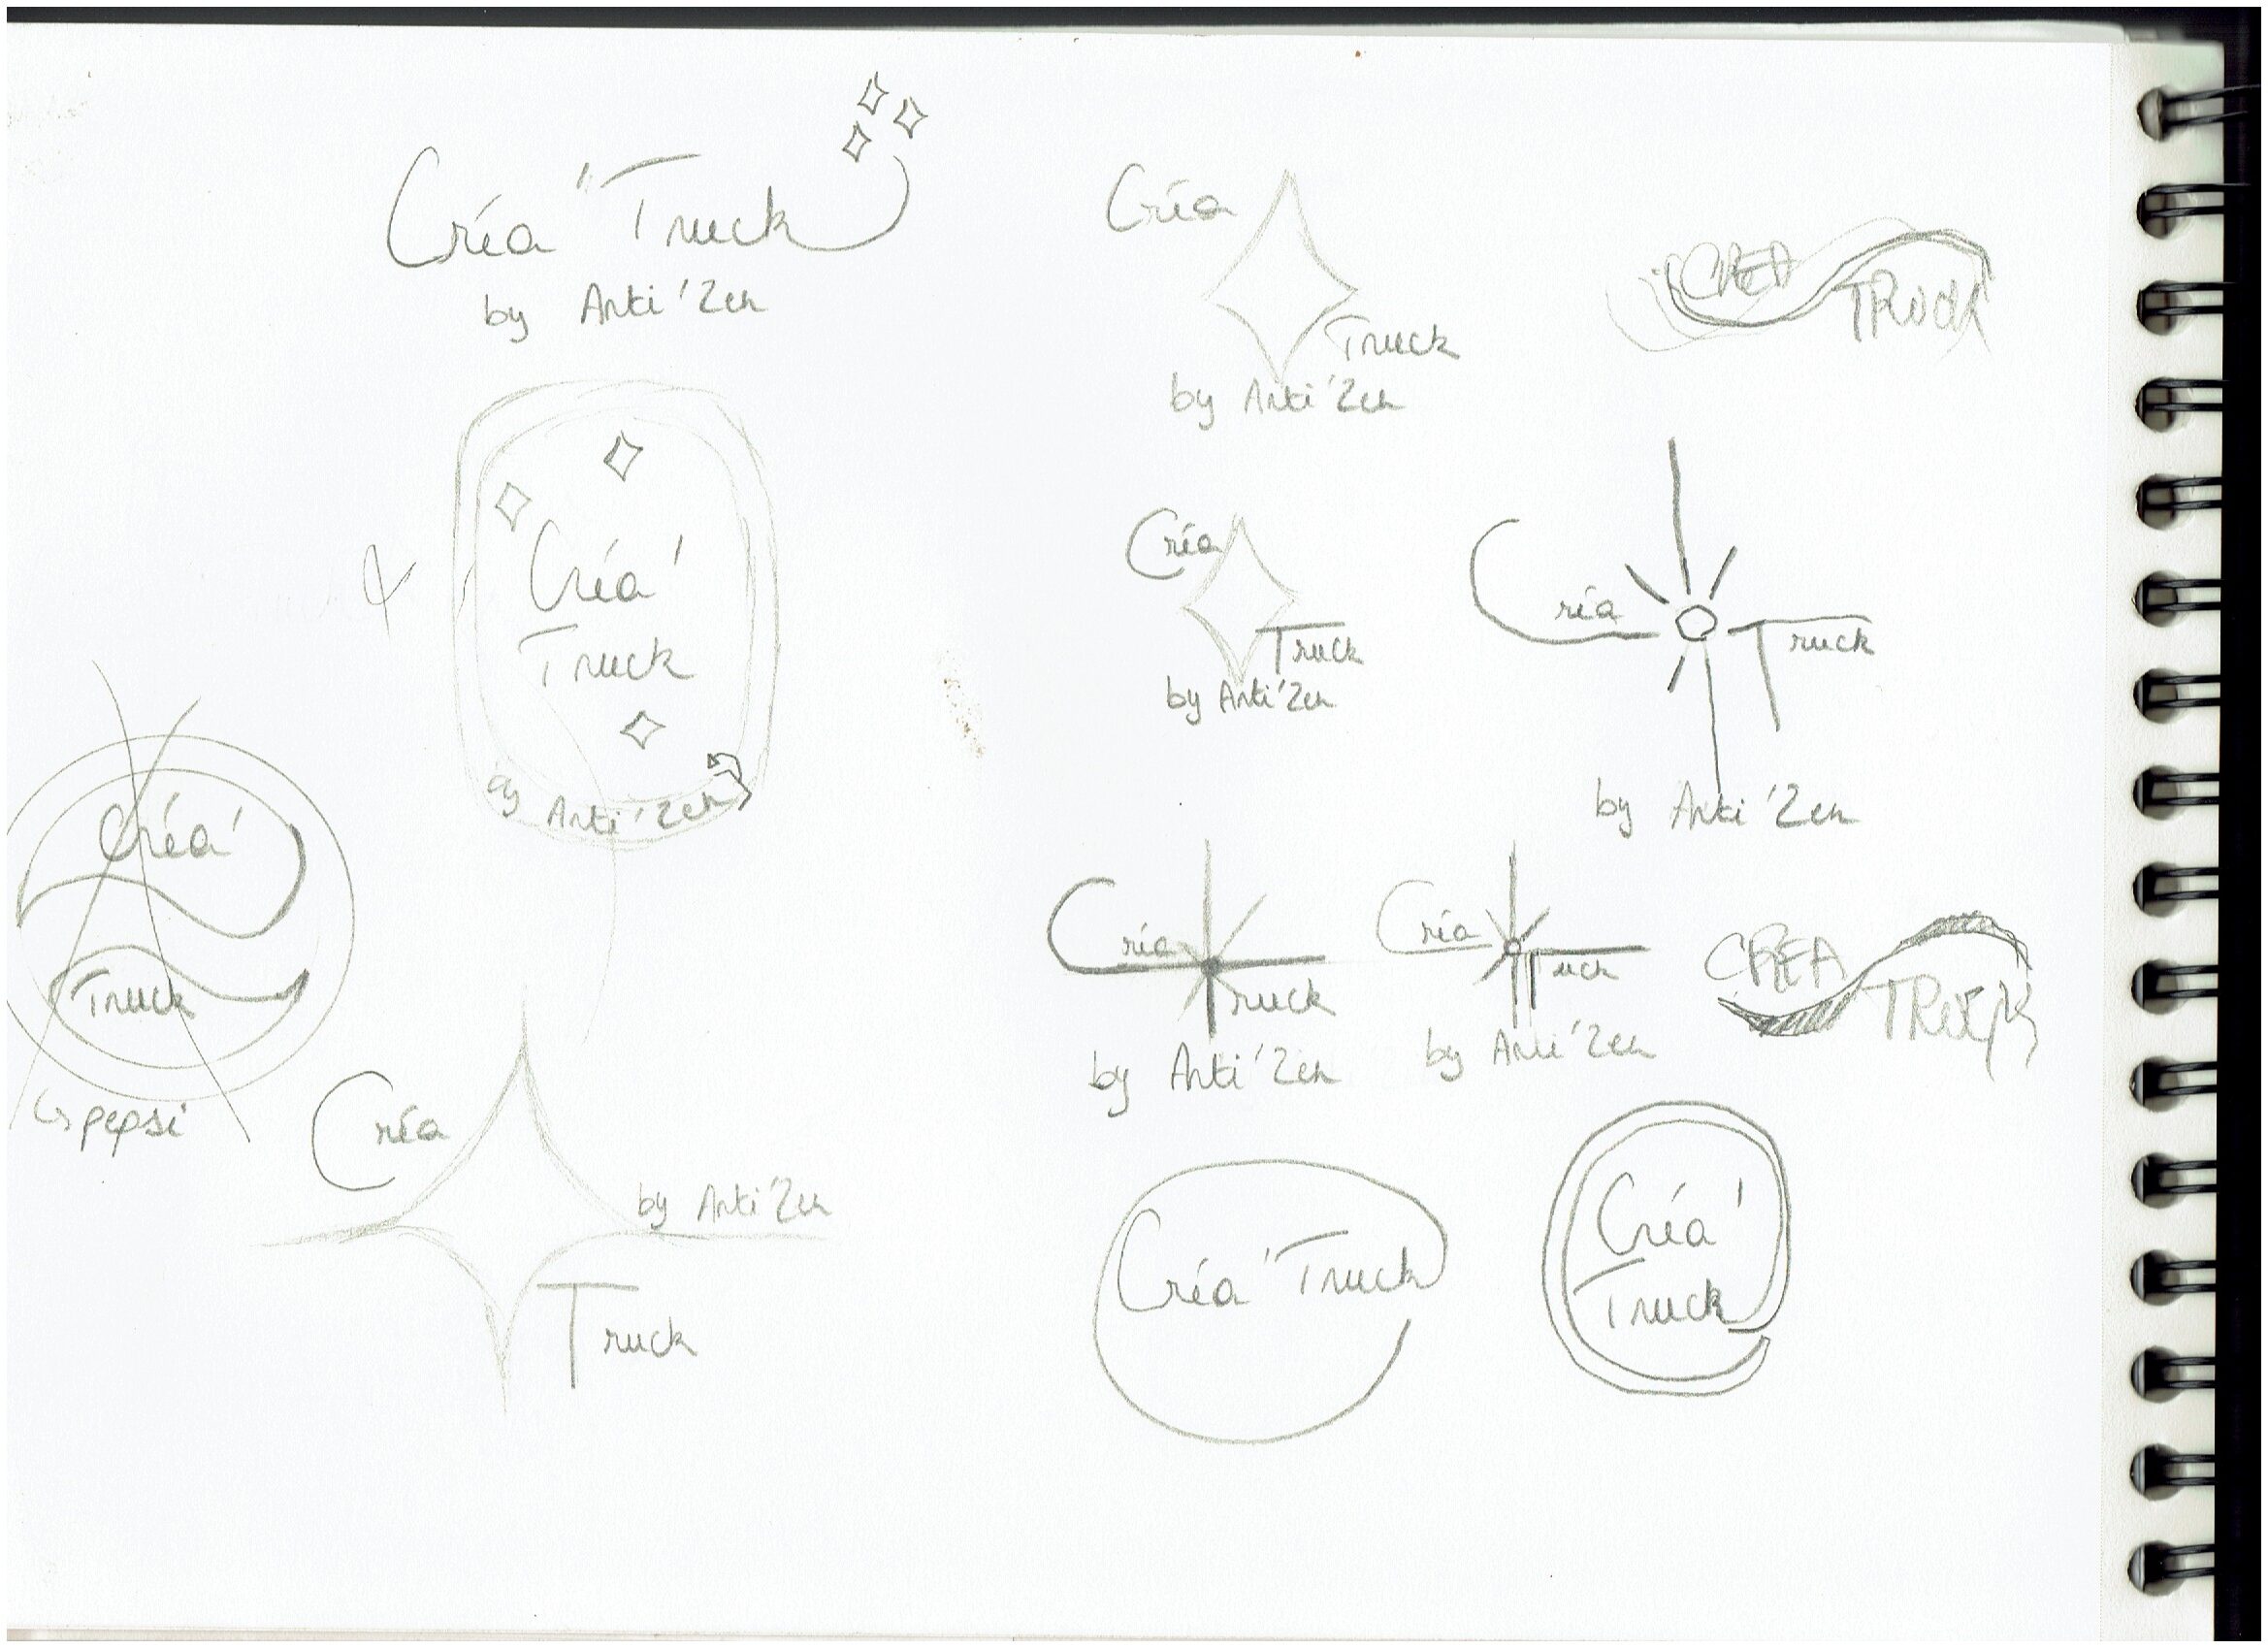 Créa'Truck
by Anti'Zen
Créa
Truck
by Anti'Zen
CREA
TRUCK
Créa'
Truck
by Anti'Zen
Créa
Truck
by Anti'Zen
Créa
Truck
by Anti'Zen
Créa'
Truck
pepsi
Créa
Truck
by Anti'Zen
Créa
Truck
by Anti'Zen
CREA
TRUCK
Créa
by Anti'Zen
Truck
Créa'Truck
Créa'
Truck